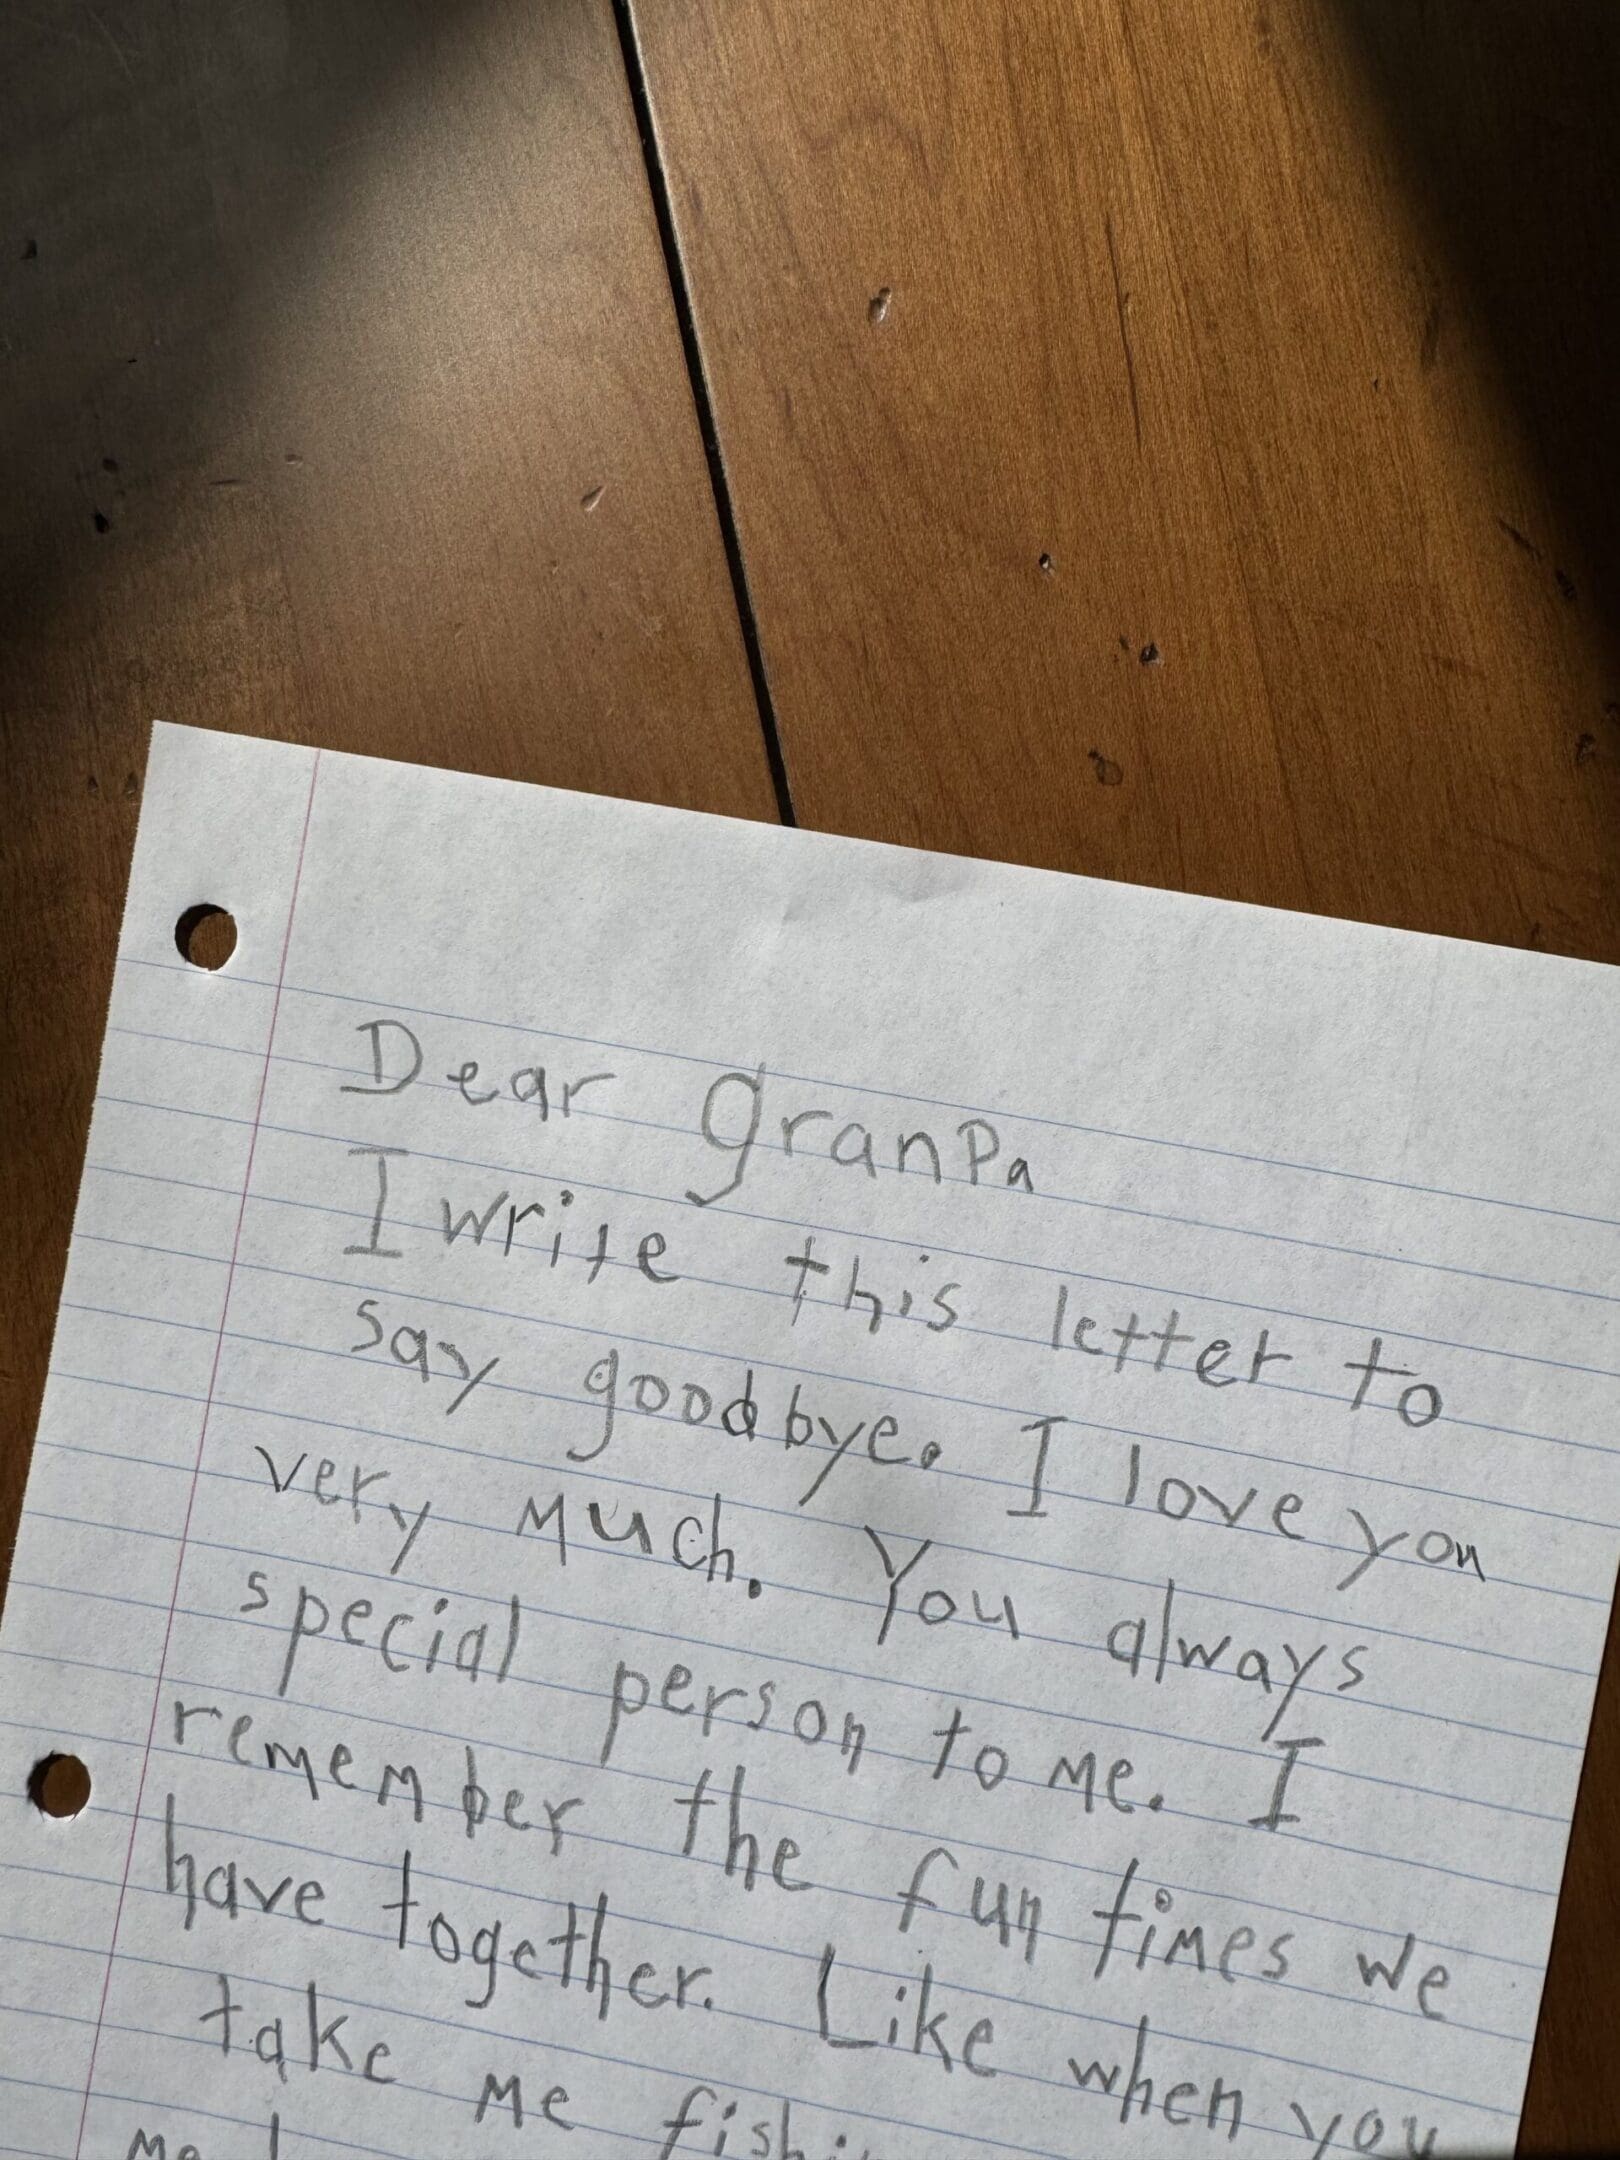 Dear granPa
I write this letter to
say goodbye. I love you
very much. You always
special person to me. I
remember the fun times we
have together. Like when you
take me
me